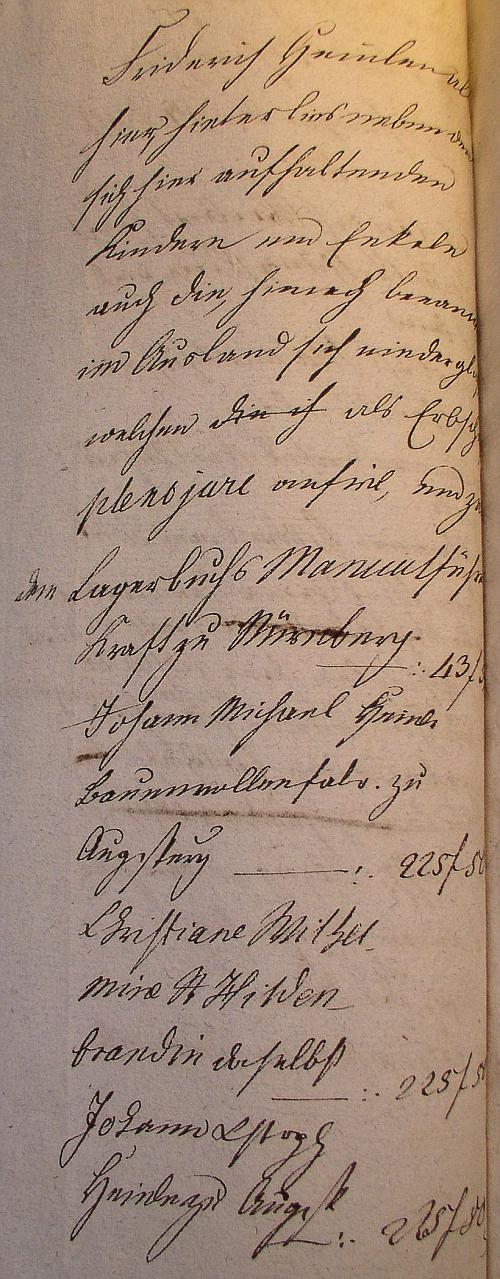 Friderich
hier, hinterlies neben den
sich hier aufhaltenden
Kindern und Enkeln
auch die, hienach benan
im Ausland sich nieder
welchen die ich als Erbsch
plenojure anfiel, und
dem Lagerbuchs Manual
Kraft zu Nürnberg : 43f
Johann Michael
Baumwollenfabr. zu
Augspurg : 225f 50
Christiane Wilhel
mine Hilden
brandin daselbst : 225f 5
Johann Cstoph
zu Augsp : 225f 50